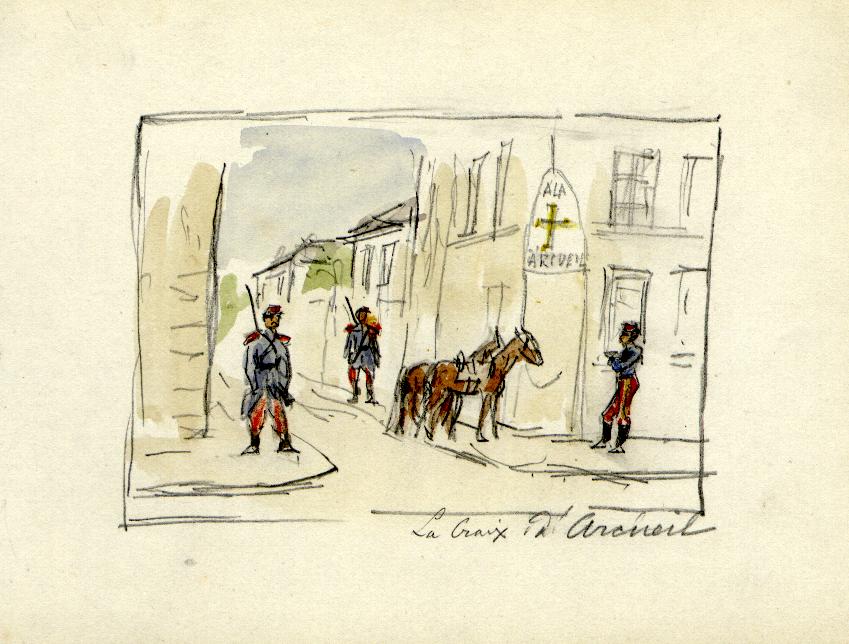 A LA
ARCUEIL
La Croix D'Arcueil